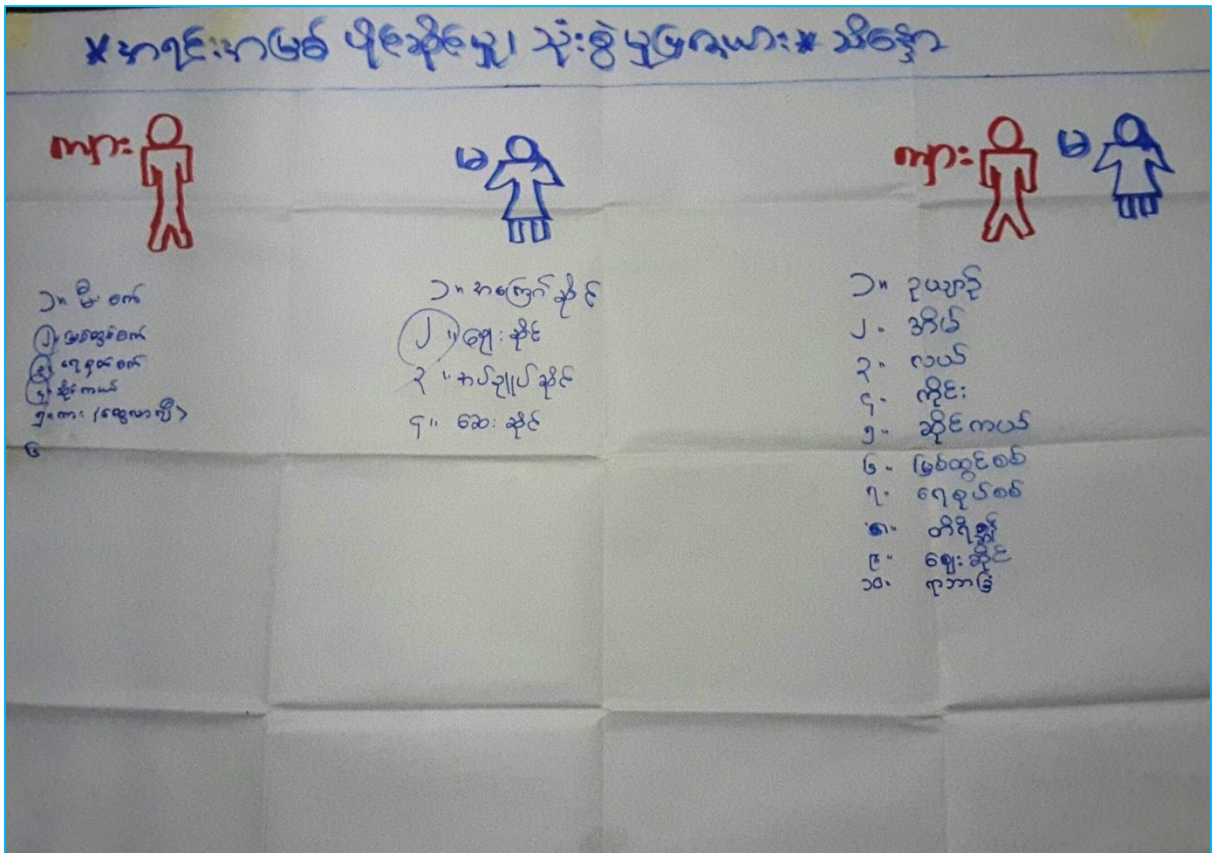 *အရင်းအမြစ် ပိုင်ဆိုင်မှု၊ သုံးစွဲမှုပြဇယား* သိန္ဒော
ကျား
မ
ကျား မ
၁။ မီးစက်
၂။ မြစ်ထွင်စက်
၃။ ရေစုပ်စက်
၄။ ဆိုင်ကယ်
၅။ ကား (ထွေလာဂျီ)
၆
၁။ အကြော်ဆိုင်
၂။ ဈေးဆိုင်
၃။ အပ်ချုပ်ဆိုင်
၄။ ဆေးဆိုင်
၁။ ဥယျာဉ်
၂။ အိမ်
၃။ လယ်
၄။ ကိုင်း
၅။ ဆိုင်ကယ်
၆။ မြစ်ထွင်စစ်
၇။ ရေစုပ်စစ်
၈။ တိရိစ္ဆာ
၉။ ဈေးဆိုင်
၁၀။ ရာဘာခြံ